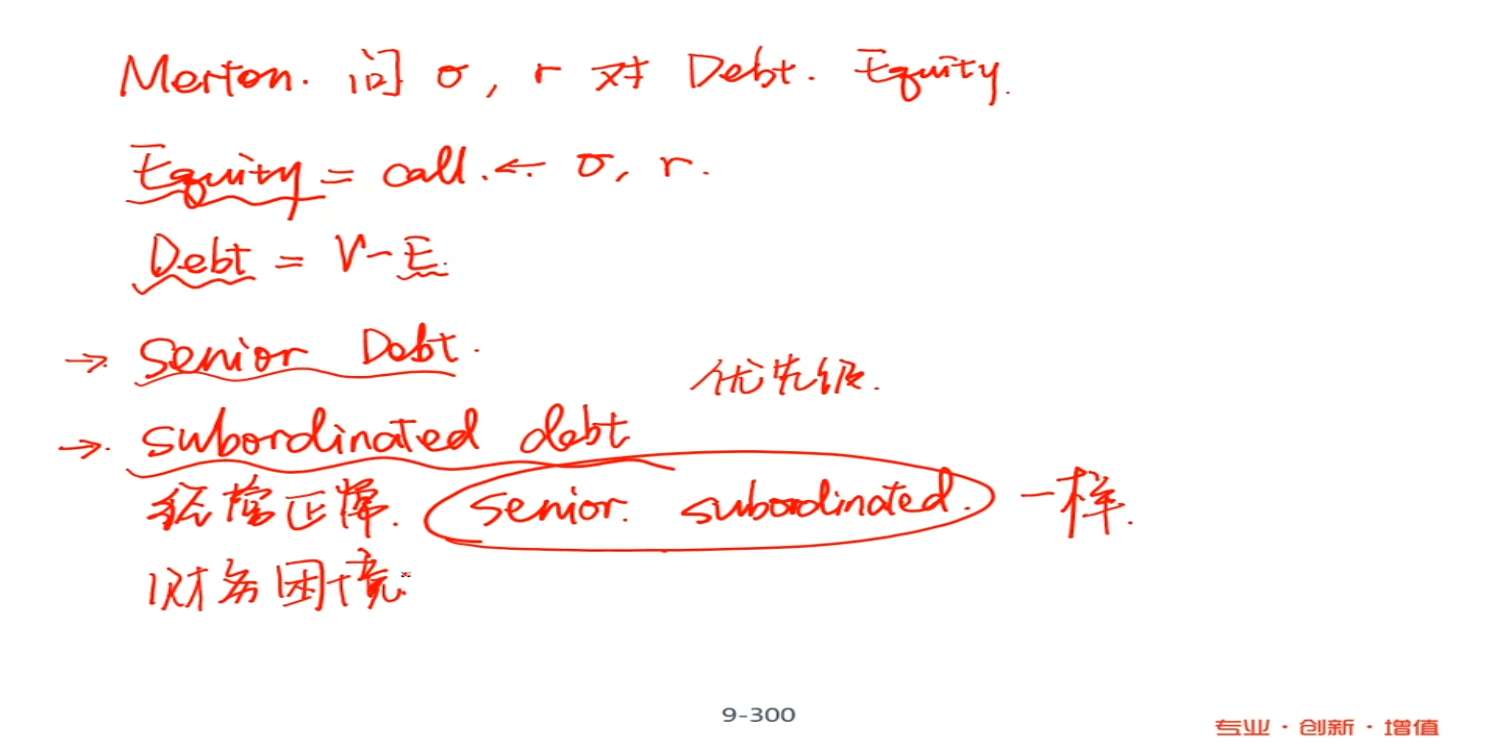 Merton. 问 σ, r 对 Debt. Equity.
Equity = call. ← σ, r.
Debt = V-E.
→ Senior Debt.
优先级.
→ subordinated debt
经营正常. senior. subordinated. 一样.
财务困境.
9-300
专业·创新·增值